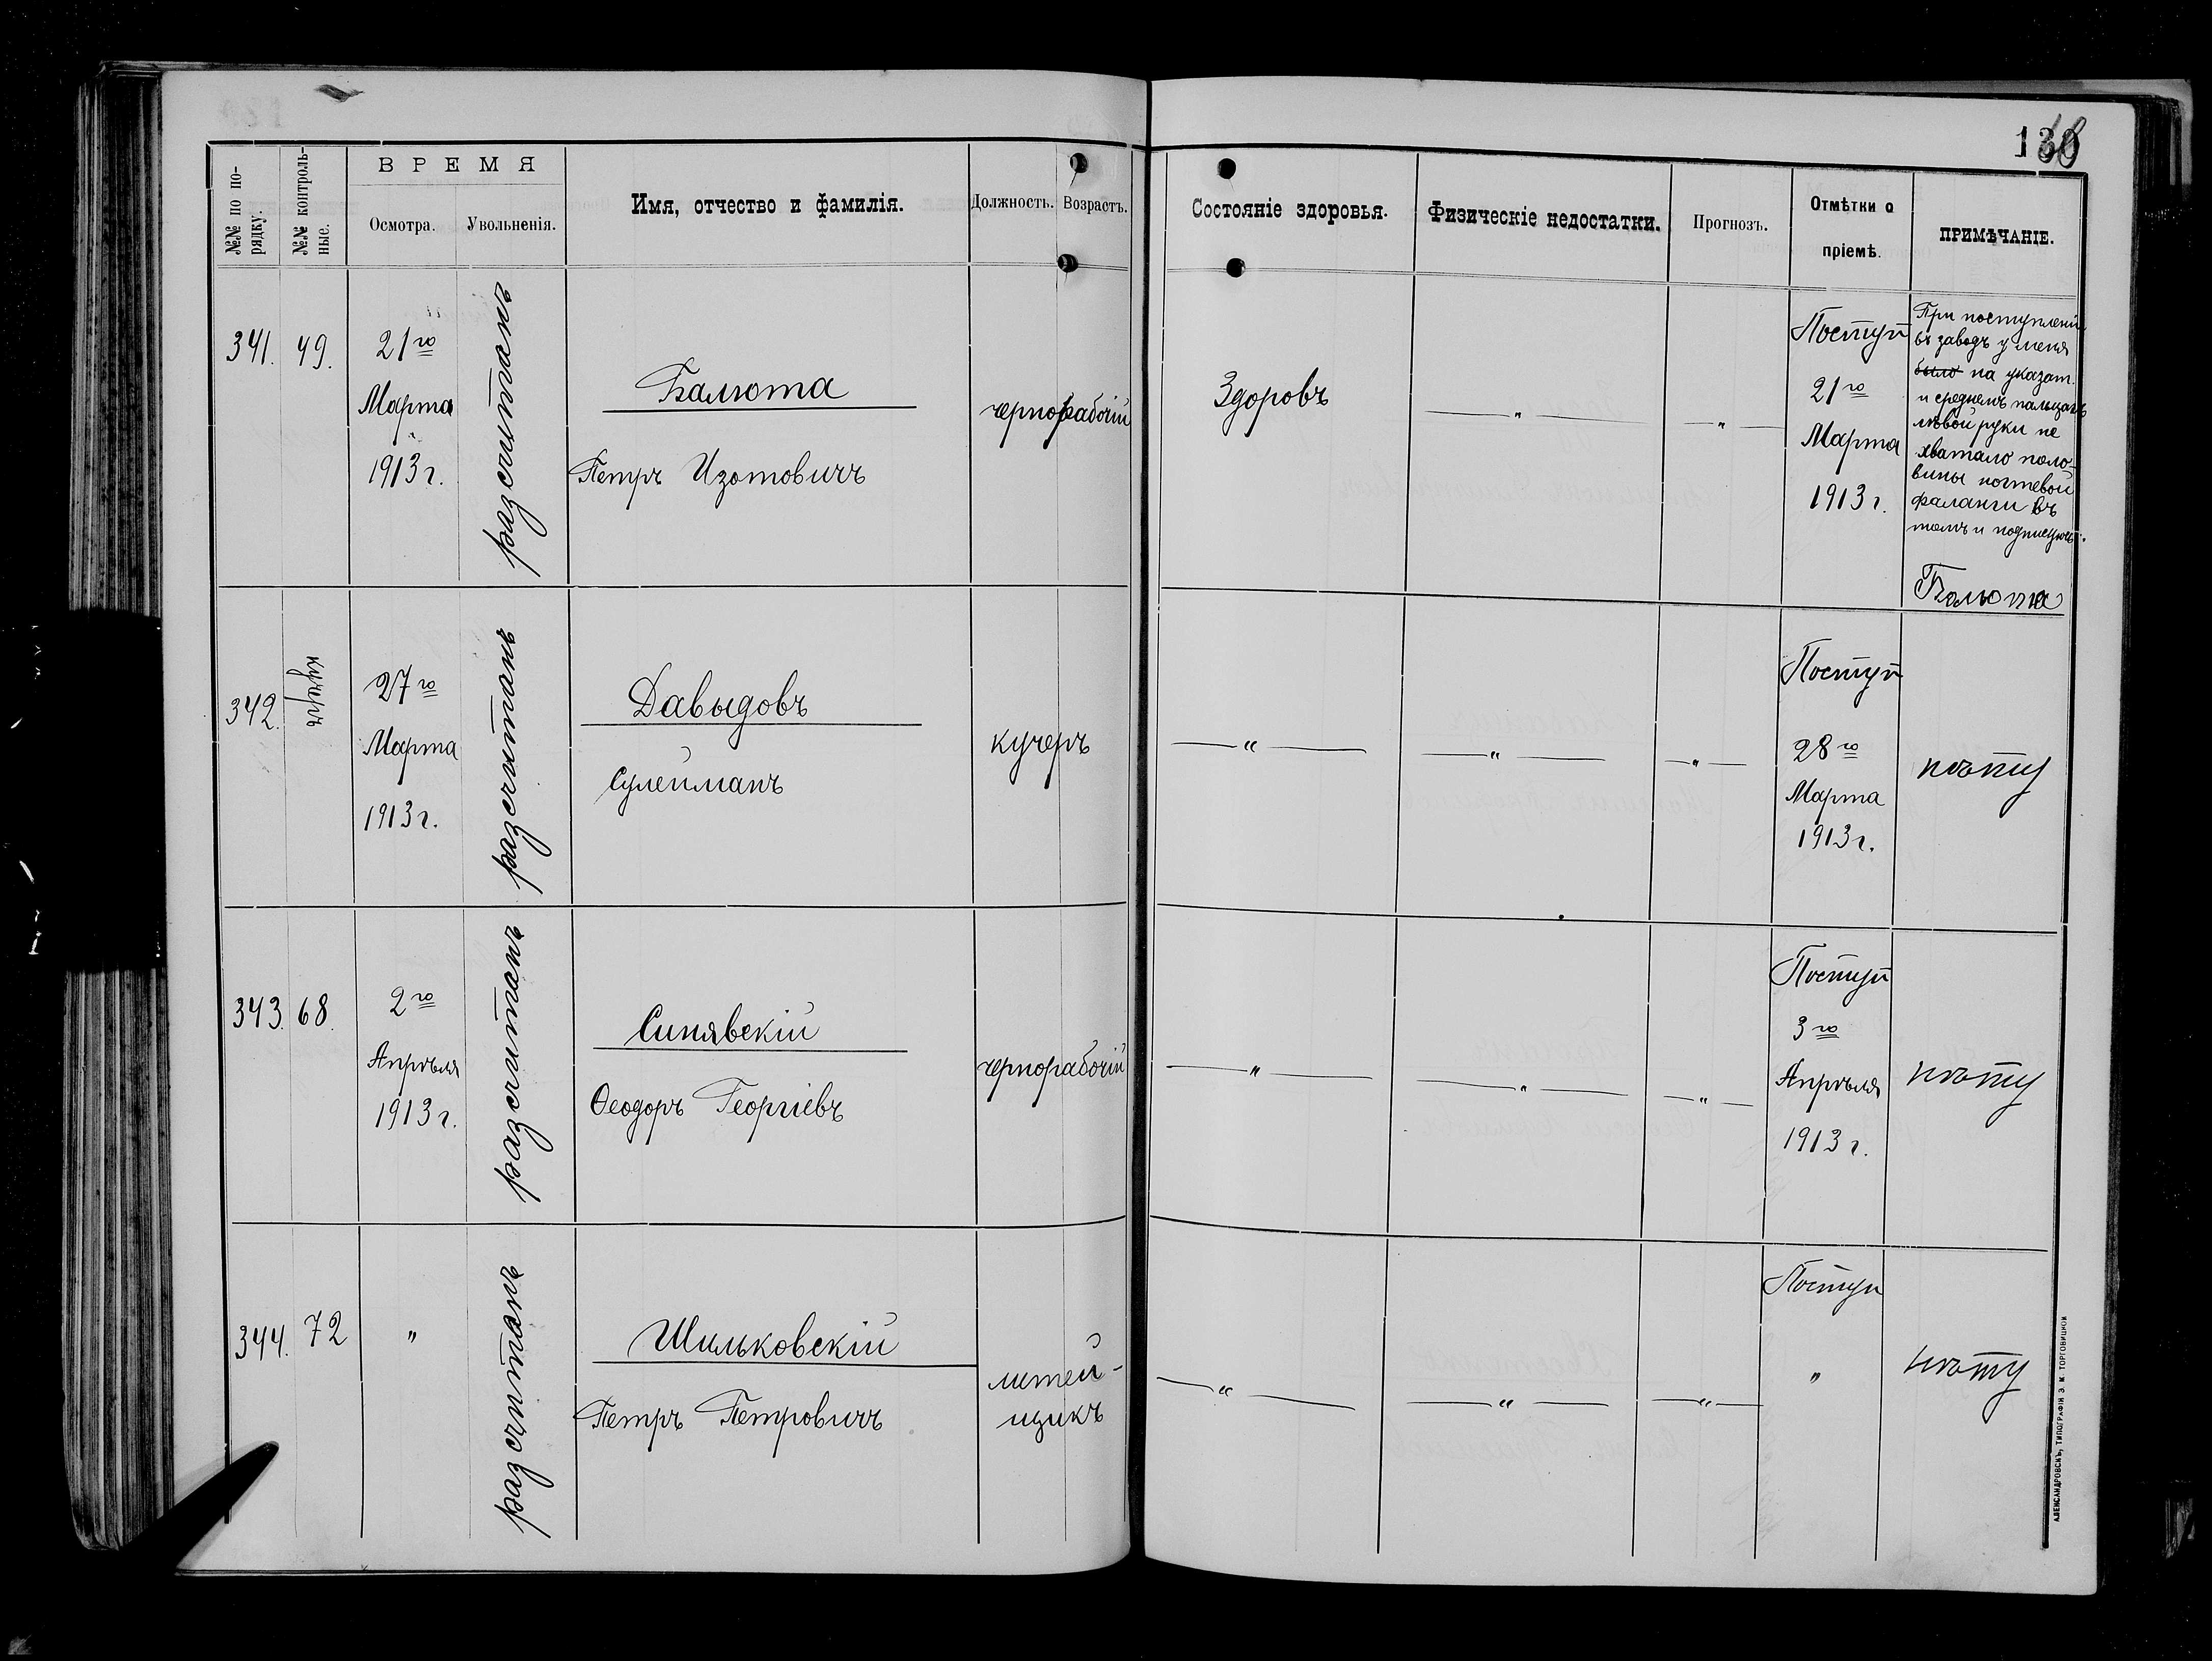 130
№№ по по-
рядку.
№№ контроль-
ные.
ВРЕМЯ
Осмотра.
Увольненія.
Имя, отчество и фамилія.
Должность.
Возрастъ.
Состояніе здоровья.
Физическіе недостатки.
Прогнозъ.
Отмѣтки о
пріемѣ.
ПРИМѢЧАНІЕ.
341.
49.
21го
Марта
1913 г.
разсчитанъ
Балюта
Петръ Изотовичъ
чернорабочій
Здоровъ
— " —
— " —
Поступ
21го
Марта
1913 г.
При поступленіи
въ заводъ у меня
было на указат.
и среднемъ пальцахъ
лѣвой руки не
хватало поло-
вины ногтевой
фаланги въ
томъ и подписуюсь.
Балюта
342.
кучеръ
27го
Марта
1913 г.
разсчитанъ
Давыдовъ
Сулейманъ
кучеръ
— " —
— " —
— " —
Поступ
28го
Марта
1913 г.
нѣту
343.
68.
2го
Апрѣля
1913 г.
разсчитанъ
Синявскій
Ѳеодоръ Георгіевъ
чернорабочій
— " —
— " —
— " —
Поступ
3го
Апрѣля
1913 г.
нѣту
344.
72
"
разсчитанъ
Шильковскій
Петръ Петровичъ
литей-
щикъ
— " —
— " —
— " —
Поступ
"
нѣту
АЛЕКСАНДРОВСКЪ, ТИПОГРАФІЯ З. М. ТОРГОВИЦКОЙ